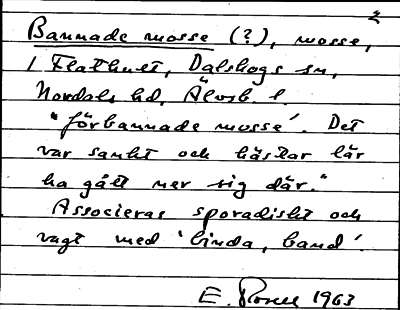 2
Bannade mosse (?), mosse,
i Flathult, Dalskogs sn,
Nordals hd, Älvsb. l.
"förbannade mosse'. Det
var sankt och hästar lär
ha gått ner sig där."
Associeras sporadiskt och
vagt med 'binda, band'.
E. 1963